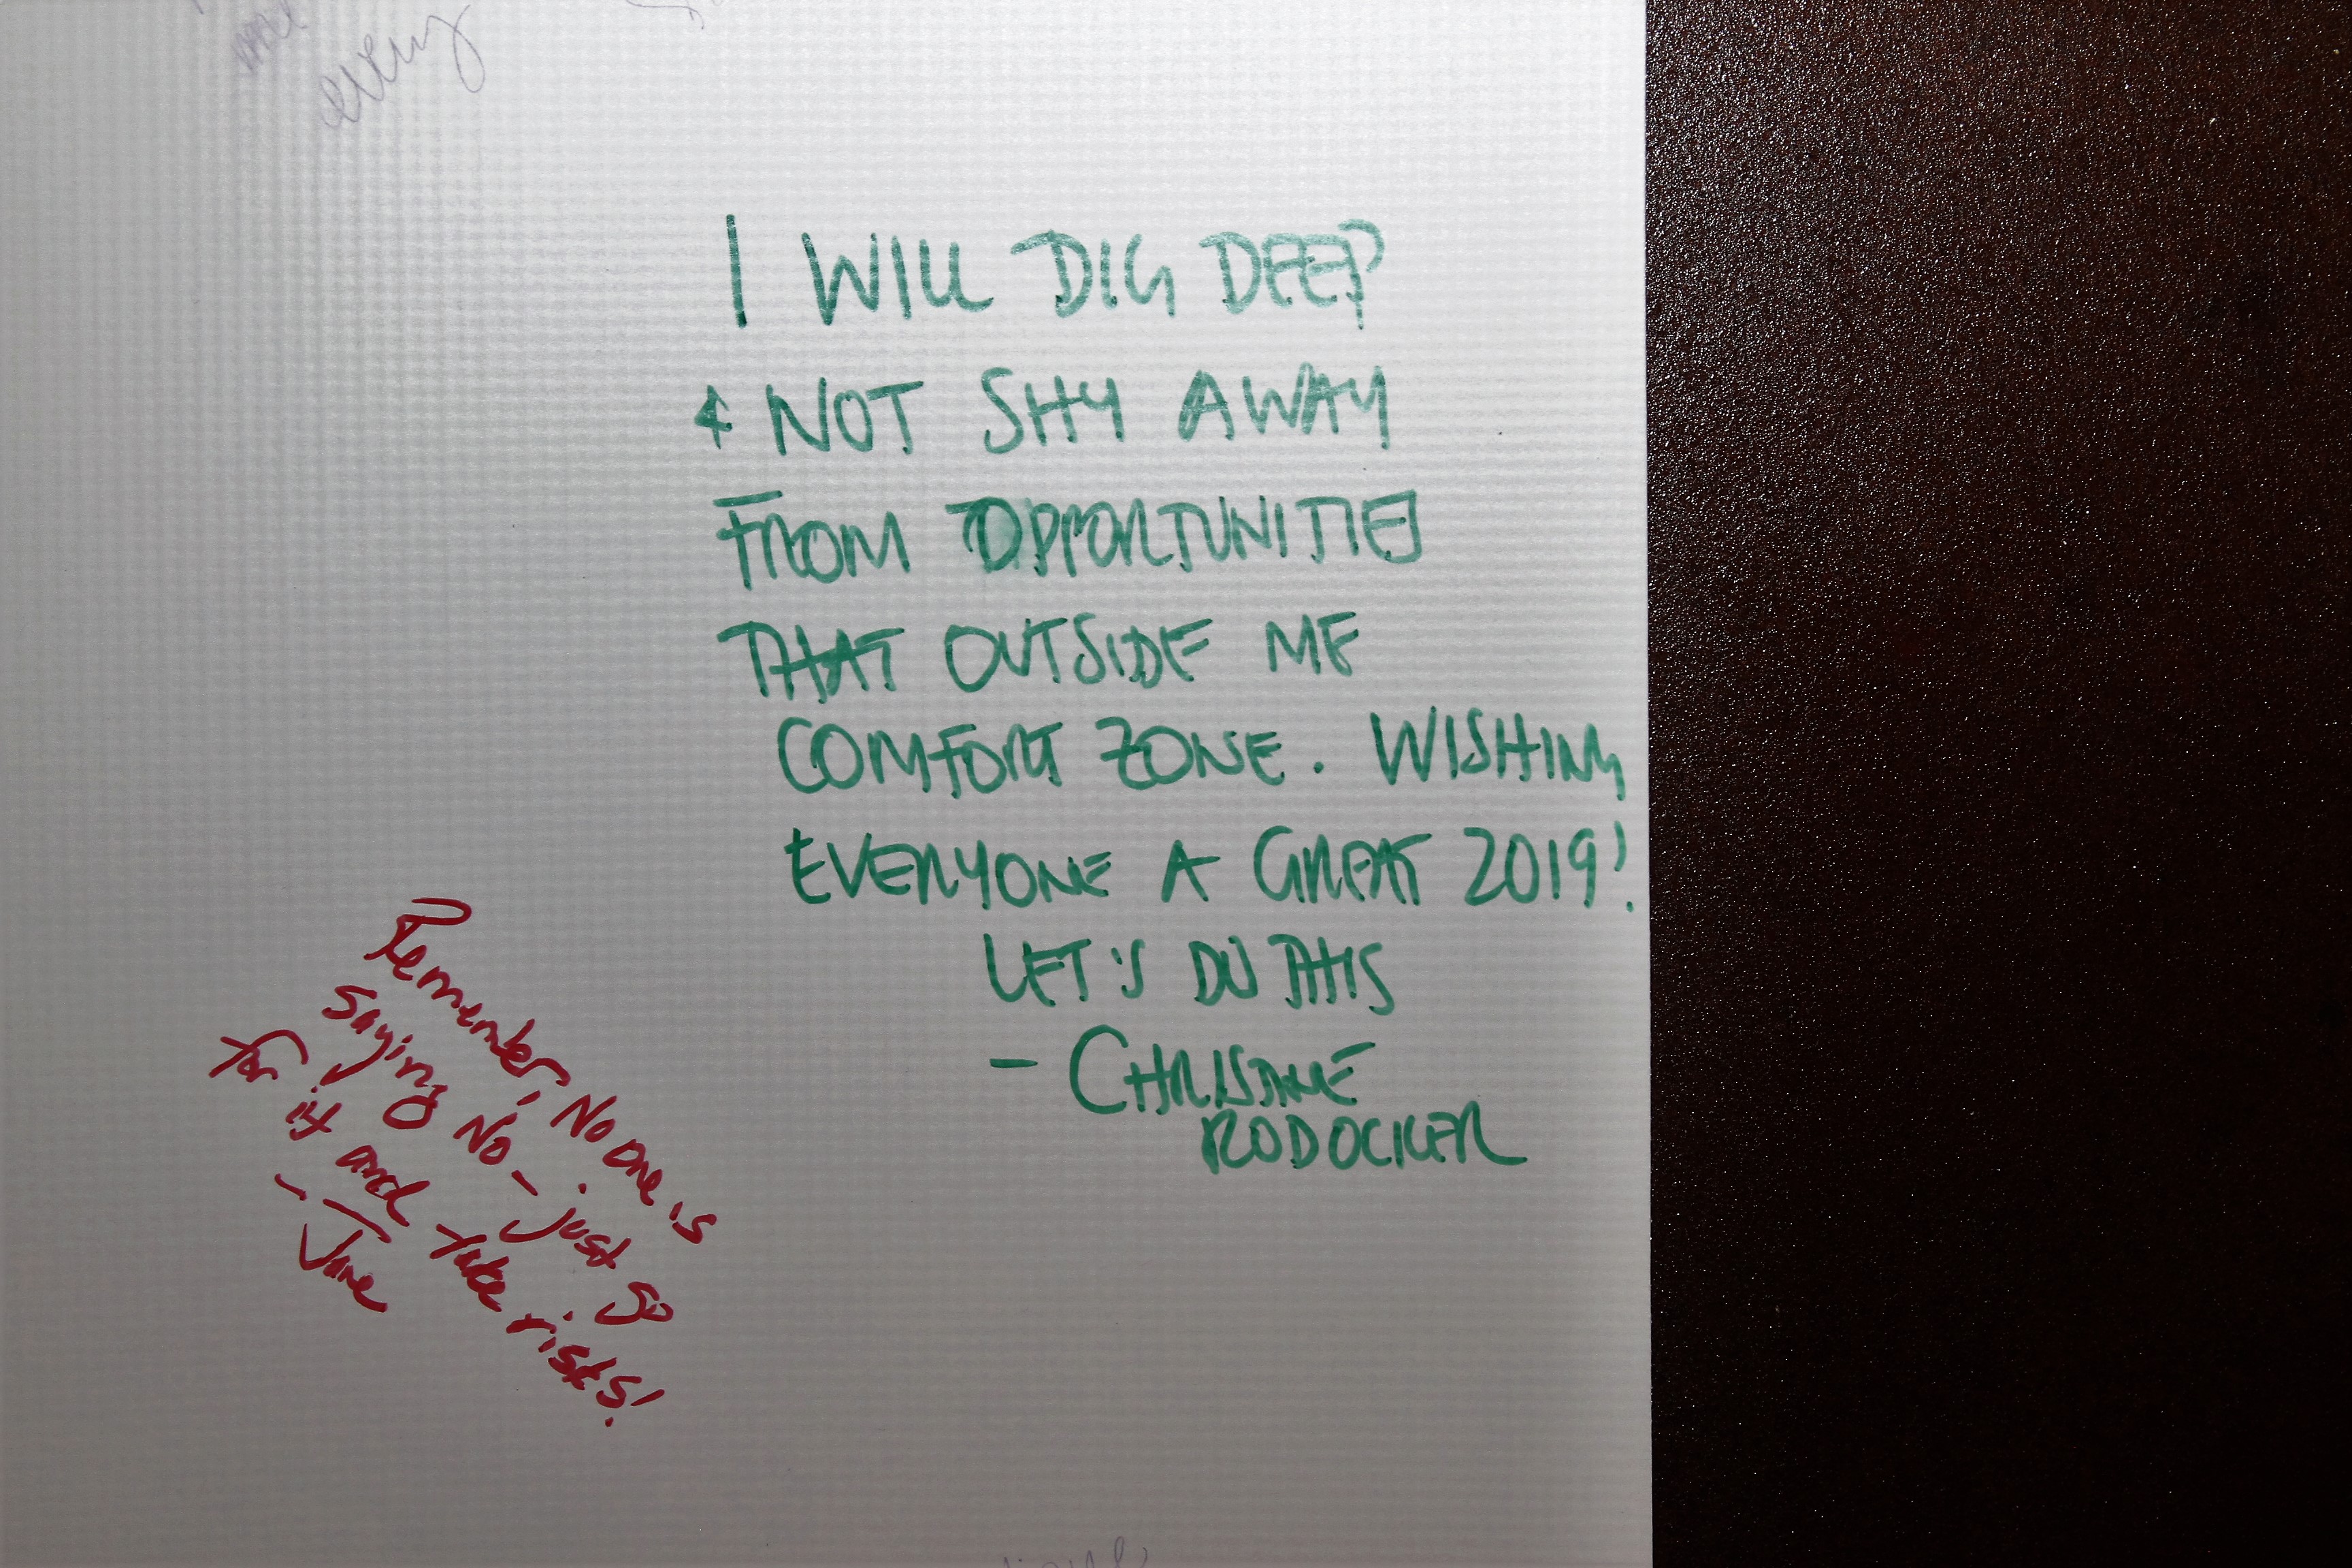 every
I WILL DIG DEEP
& NOT SHY AWAY
FROM OPPORTUNITIES
THAT OUTSIDE ME
COMFORT ZONE. WISHING
EVERYONE A GREAT 2019!
LET'S DO THIS
- CHRISTINE
RODOCKER
Remember, No one is
saying No - just go
for it and take risks!
- Jane